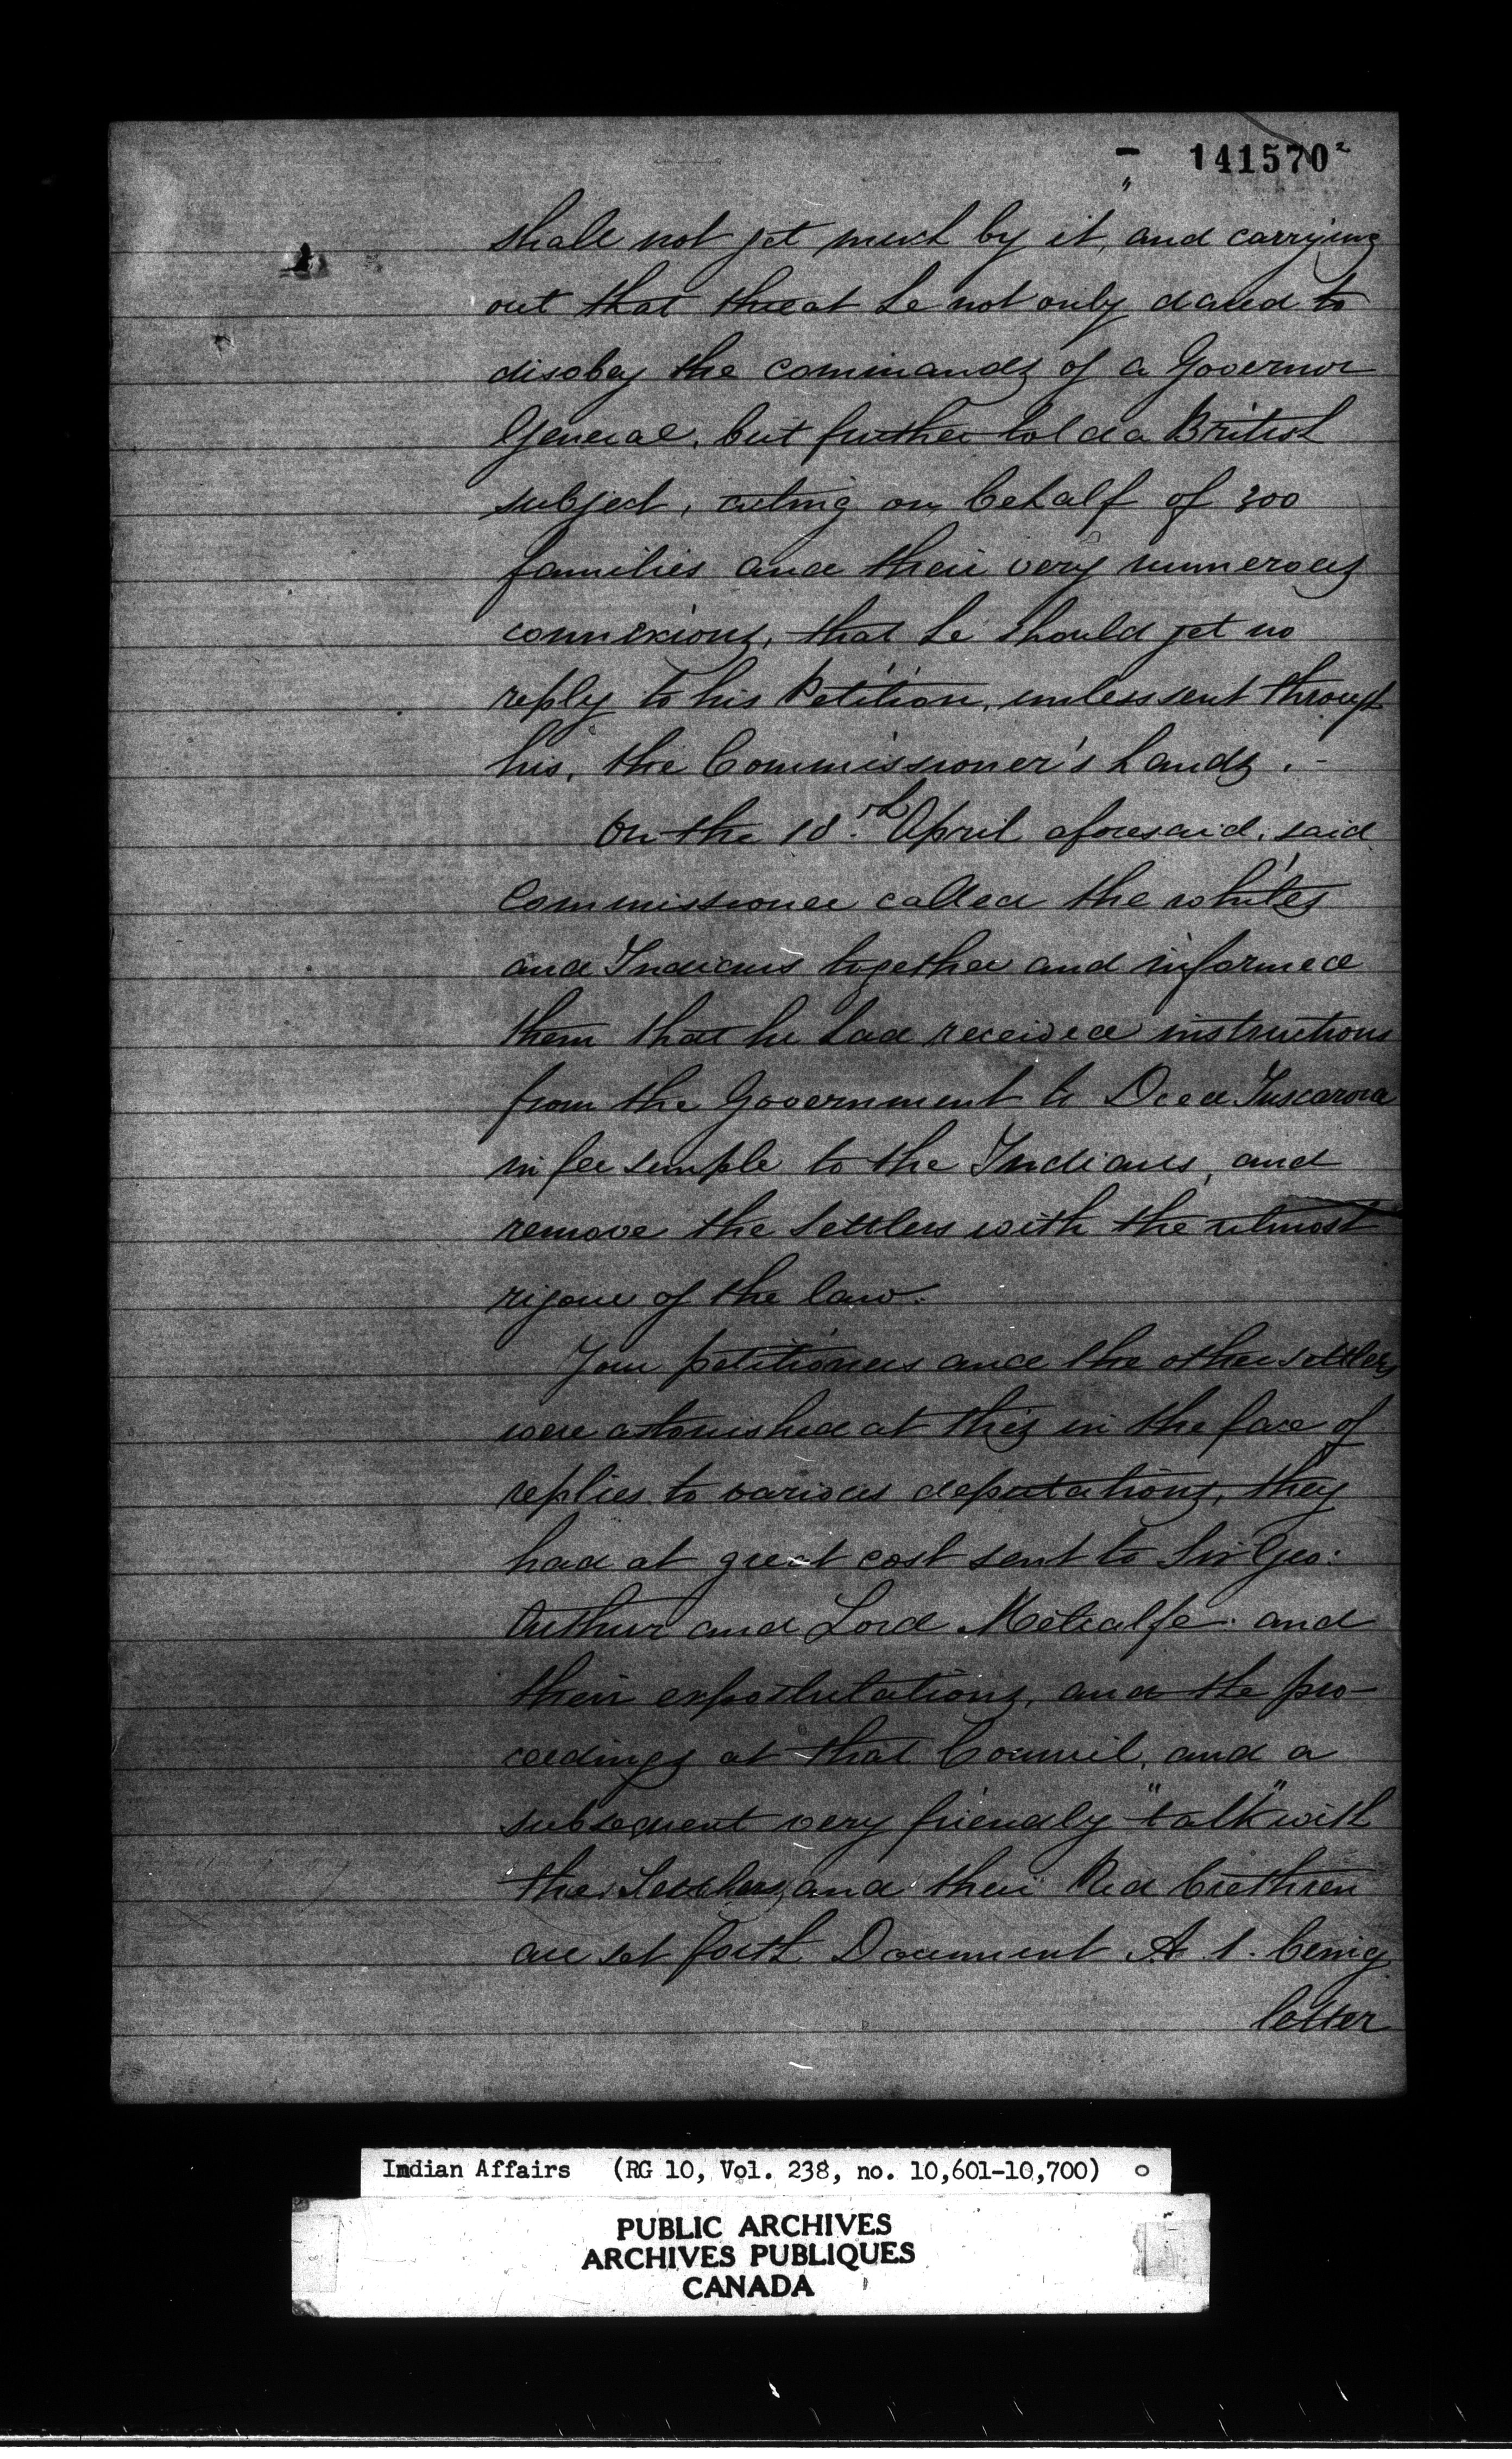 141570²
shall not get much by it, and carrying
out that threat he not only dared to
disobey the commands of a Governor
General, but further told a British
subject, acting on behalf of 300
families and their very numerous
connexions, that he should get no
reply to his Petition, unless sent through
his, the Commissioner's hands.-
On the 18th April aforesaid, said
Commissioner called the whites
and Indians together and informed
them that he had received instructions
from the Government to Deed Tuscarora
in fee simple to the Indians, and
remove the settlers with the utmost
rigour of the law.
Your petitioners and the other settlers
were astonished at this in the face of
replies to various deputations, they
had at great cost sent to Sir Geo:
Arthur and Lord Metcalfe. and
their expostulations, and the pro-
ceedings at that Council, and a
subsequent very friendly "talk" with
the Settlers, and their Red brethren
are set forth Document A 1. being
letter
Indian Affairs (RG 10, Vol. 238, no. 10,601-10,700)
PUBLIC ARCHIVES
ARCHIVES PUBLIQUES
CANADA